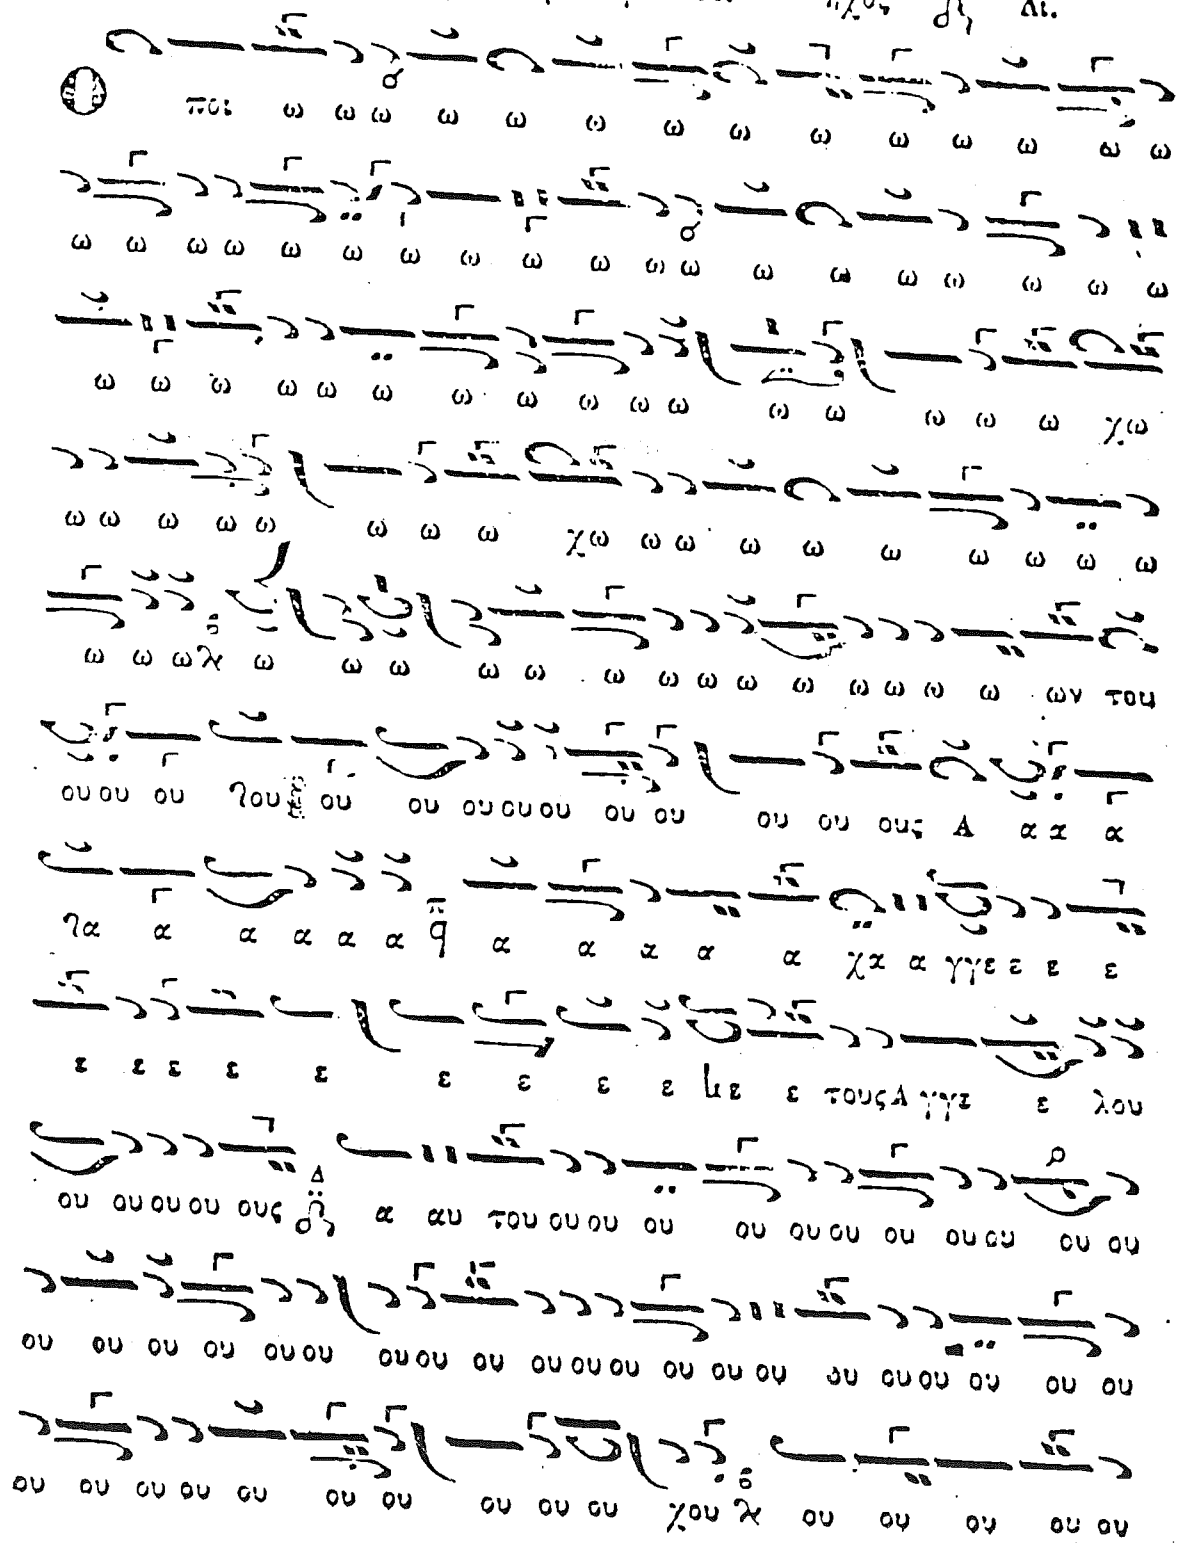 ἦχος Δι.
Ὁ ποι ω ω ω ω ω ω ω ω ω ω ω ω ω ω
ω ω ω ω ω ω ω ω ω ω ω ω ω ω ω ω ω ω ω
ω ω ω ω ω ω ω ω ω ω ω ω ω ω ω ω χω
ω ω ω ω ω ω ω ω χω ω ω ω ω ω ω ω ω ω
ω ω ω ω ω ω ω ω ω ω ω ω ω ω ω ω ω ων του
ου ου ου ου ου ου ου ου ου ου ου ου ου ους Α α α α
α α α α α α α α α α α χα α γγε ε ε ε
ε ε ε ε ε ε ε ε ε ε τους Α γγε ε λου
ου ου ου ου ους α αυ του ου ου ου ου ου ου ου ου ου ου ου
ου ου ου ου ου ου ου ου ου ου ου ου ου ου ου ου ου ου ου ου ου
ου ου ου ου ου ου ου ου ου ου χου ου ου ου ου ου